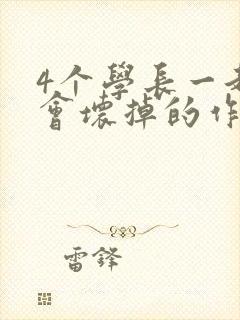 4个學長一
會壞掉的作
雷鋒